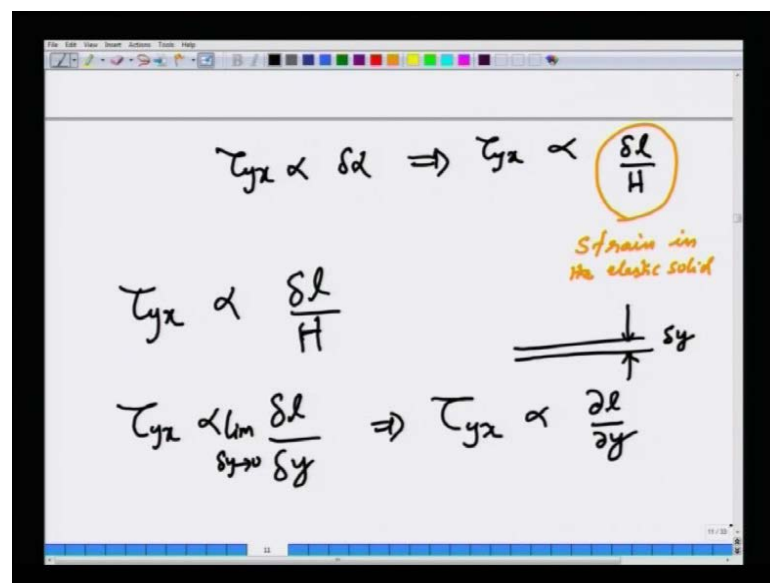 File Edit View Insert Actions Tools Help
τyx ∝ δα ⇒ τyx ∝ δl/H
Strain in
the elastic solid
τyx ∝ δl/H
δy
τyx ∝ lim δy→0 δl/δy ⇒ τyx ∝ ∂l/∂y
11